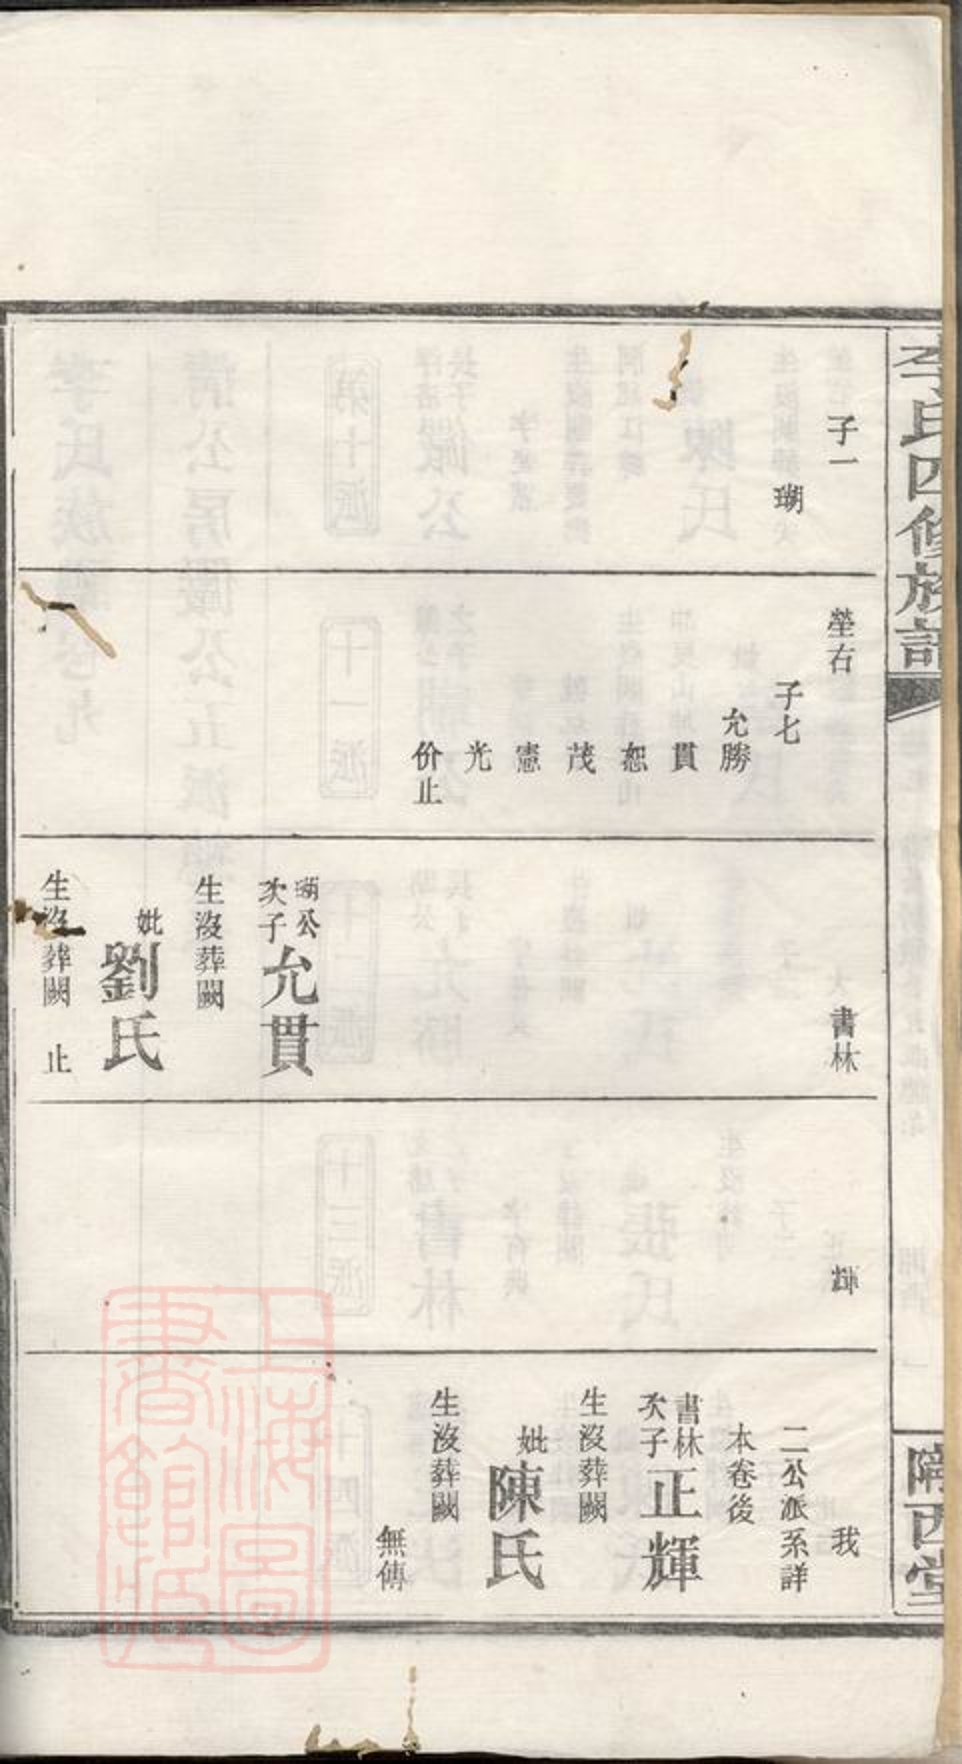 李氏四修族譜
隴西堂
子一 瑚
塋右
子七
允勝
貫
恕
茂
憲
光
价止
大 書林
瑚公
次子
允貫
生沒葬闕
妣
劉氏
生沒葬闕 止
輝
我
二公派系詳
本卷後
書林
次子
正輝
生沒葬闕
妣
陳氏
生沒葬闕
無傳
上海圖
書館藏